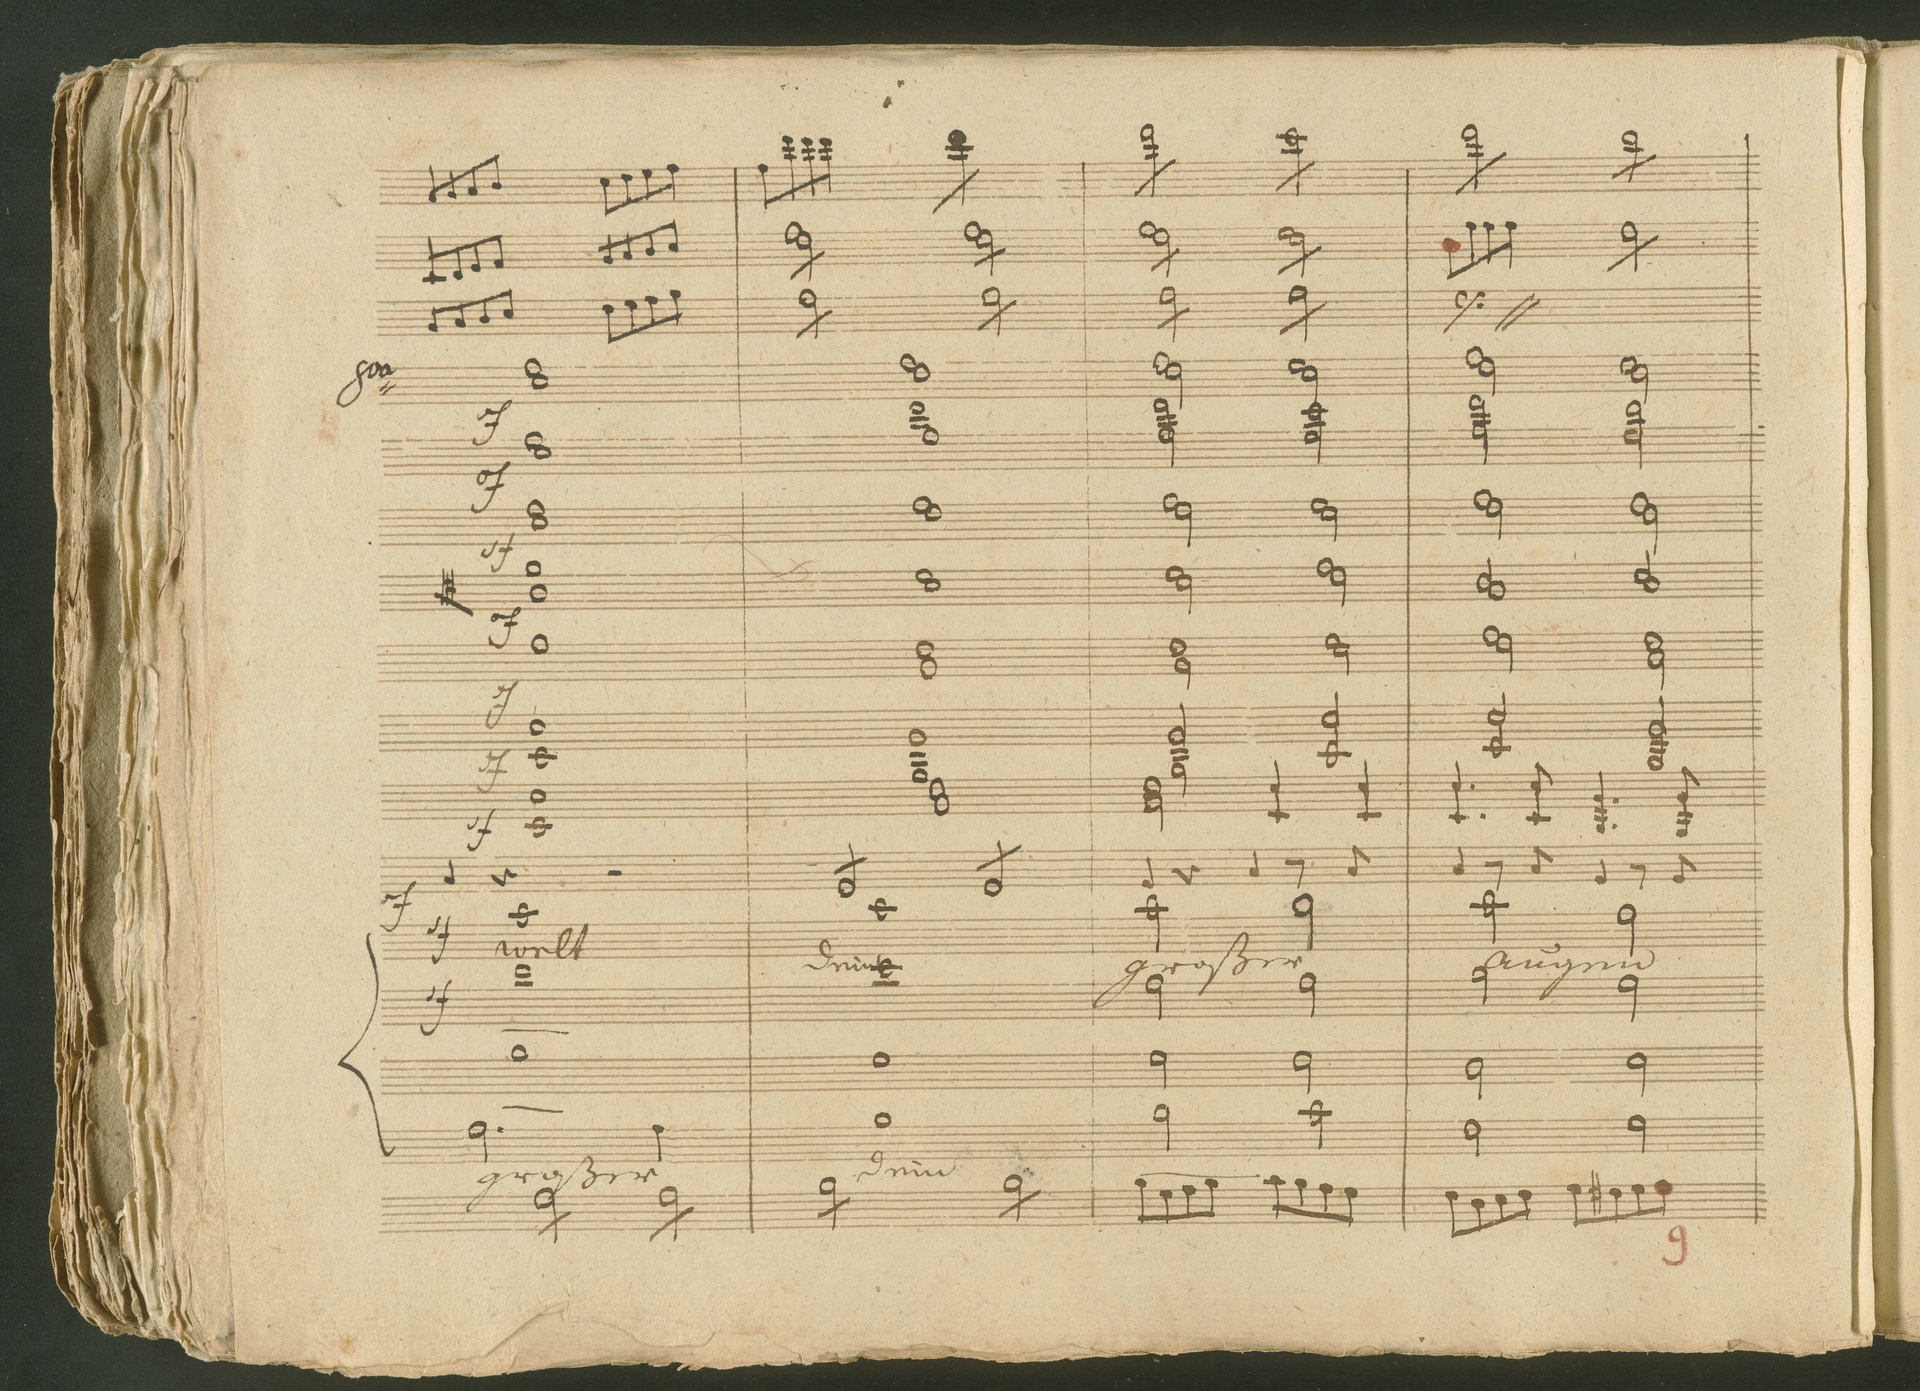 8va
sf
sf
sf
sf
sf
sf
sf
sf
sf
welt dein großer augen
sf
großer dein
9